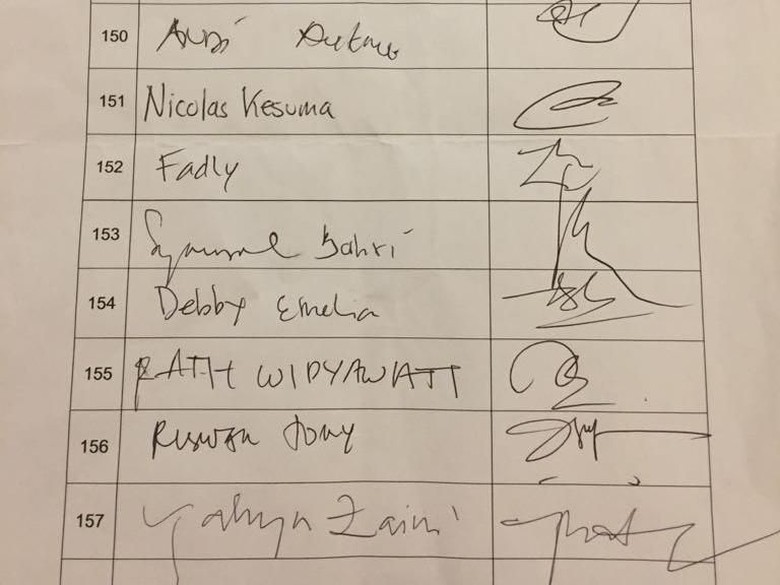 150 Andi
151 Nicolas Kesuma
152 Fadly
153 Syamsul Bahri
154 Debby Emelia
155 RATIH WIDYAWATI
156 Ruswan Tony
157 Yahya Zaini